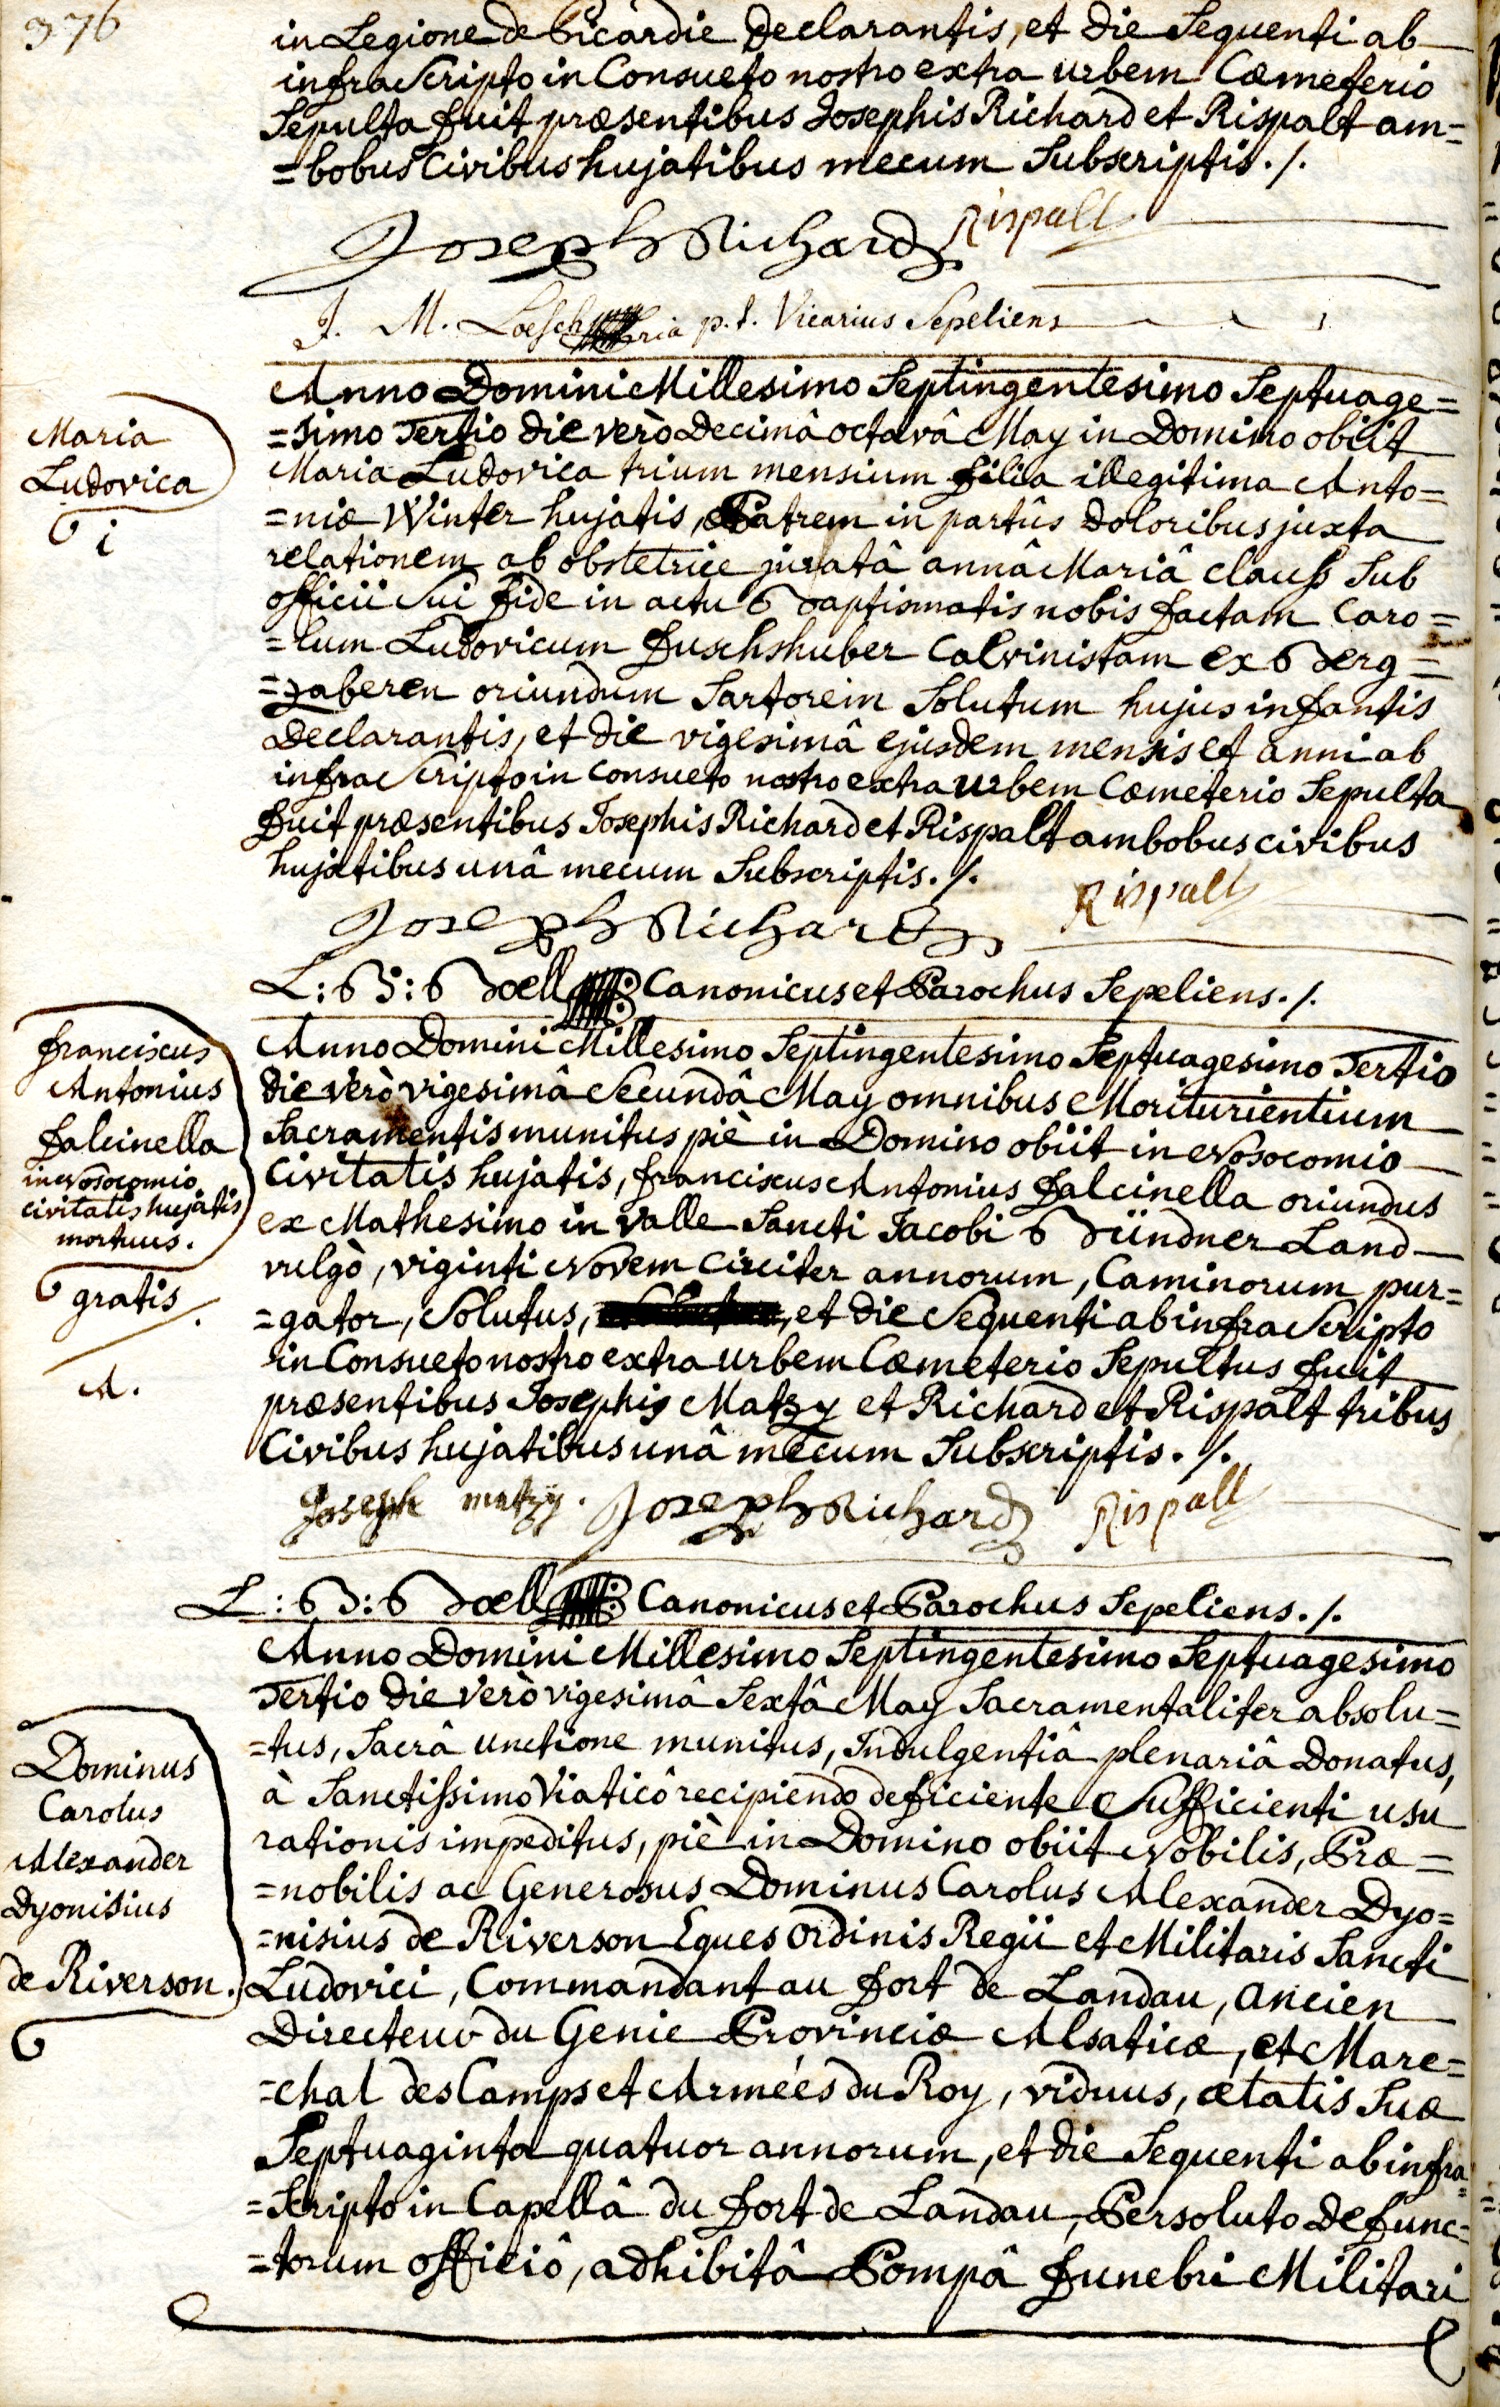 376
in Legione de Picardie Declarantis, et die Sequenti ab
infra Scripto in Consueto nostro extra urbem Cœmeterio
Sepulta fuit præsentibus Josephis Richard et Rispalt am=
=bobus Civibus hujatibus mecum Subscriptis. /.
Joseph Richard Rispalt
J. M. Loesch p. t. Vicarius Sepeliens
Maria
Ludovica
i
Anno Domini Millesimo Septingentesimo Septuage=
=simo Tertio die verò Decimâ octavâ May in Domino obiit
Maria Ludovica trium mensium filia illegitima Anto=
=niæ Winter hujatis, Patrem in partûs Doloribus juxta
relationem ab obstetrice juratâ annâ Mariâ Clauß Sub
officii Sui fide in actu Baptismatis nobis factam Caro=
=lum Ludovicum fuschshuber Calvinistam ex Berg=
=zaberen oriundum Sartorem Solutum hujus infantis
Declarantis, et die vigesimâ ejusdem mensis et anni ab
infra Scripto in consueto nostro extra urbem Cœmeterio Sepulta
fuit præsentibus Josephis Richard et Rispalt ambobus civibus
hujatibus unâ mecum Subscriptis. /.
Joseph Richard Rispalt
L: B: Boell Canonicus et Parochus Sepeliens. /.
franciscus
Antonius
falcinella
in Nosocomio
civitatis hujatis
mortuus.
gratis
A.
Anno Domini Millesimo Septingentesimo Septuagesimo Tertio
die verò vigesimâ Secundâ May omnibus Moriturientium
Sacramentis munitus piè in Domino obiit in Nosocomio
Civitatis hujatis, franciscus Antonius falcinella oriundus
ex Mathesimo in Valle Sancti Jacobi Bündner Land
vulgò, viginti Novem Circiter annorum, Caminorum pur=
=gator, Solutus, et die Sequenti ab infra Scripto
in Consueto nostro extra urbem Cœmeterio Sepultus fuit
præsentibus Josephis Matzy et Richard et Rispalt tribus
Civibus hujatibus unâ mecum Subscriptis. /.
Joseph matzy. Joseph Richard Rispalt
L: B: Boell Canonicus et Parochus Sepeliens. /.
Dominus
Carolus
Alexander
Dyonisius
de Riverson.
Anno Domini Millesimo Septingentesimo Septuagesimo
Tertio die verò vigesimâ Sextâ May Sacramentaliter absolu=
=tus, Sacrâ unctione munitus, Indulgentiâ plenariâ Donatus,
à Sanctißimo Viaticô recipiendo deficiente Sufficienti usu
rationis impeditus, piè in Domino obiit Nobilis, Præ=
=nobilis ac Generosus Dominus Carolus Alexander Dyo=
=nisius de Riverson Eques Ordinis Regii et Militaris Sancti
Ludovici, Commandant au fort de Landau, ancien
Directeur du Genie Provinciæ Alsaticæ, et Mare=
=chal des Camps et Armées du Roy, viduus, ætatis Suæ
Septuaginta quatuor annorum, et die Sequenti ab infra=
=Scripto in Capellâ du fort de Landau, Persoluto Defunc=
=torum officiô, adhibitâ Pompâ funebri Militari